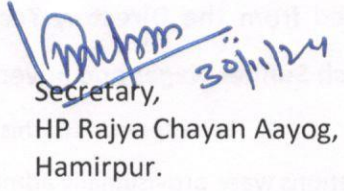 30/11/24
Secretary,
HP Rajya Chayan Aayog,
Hamirpur.